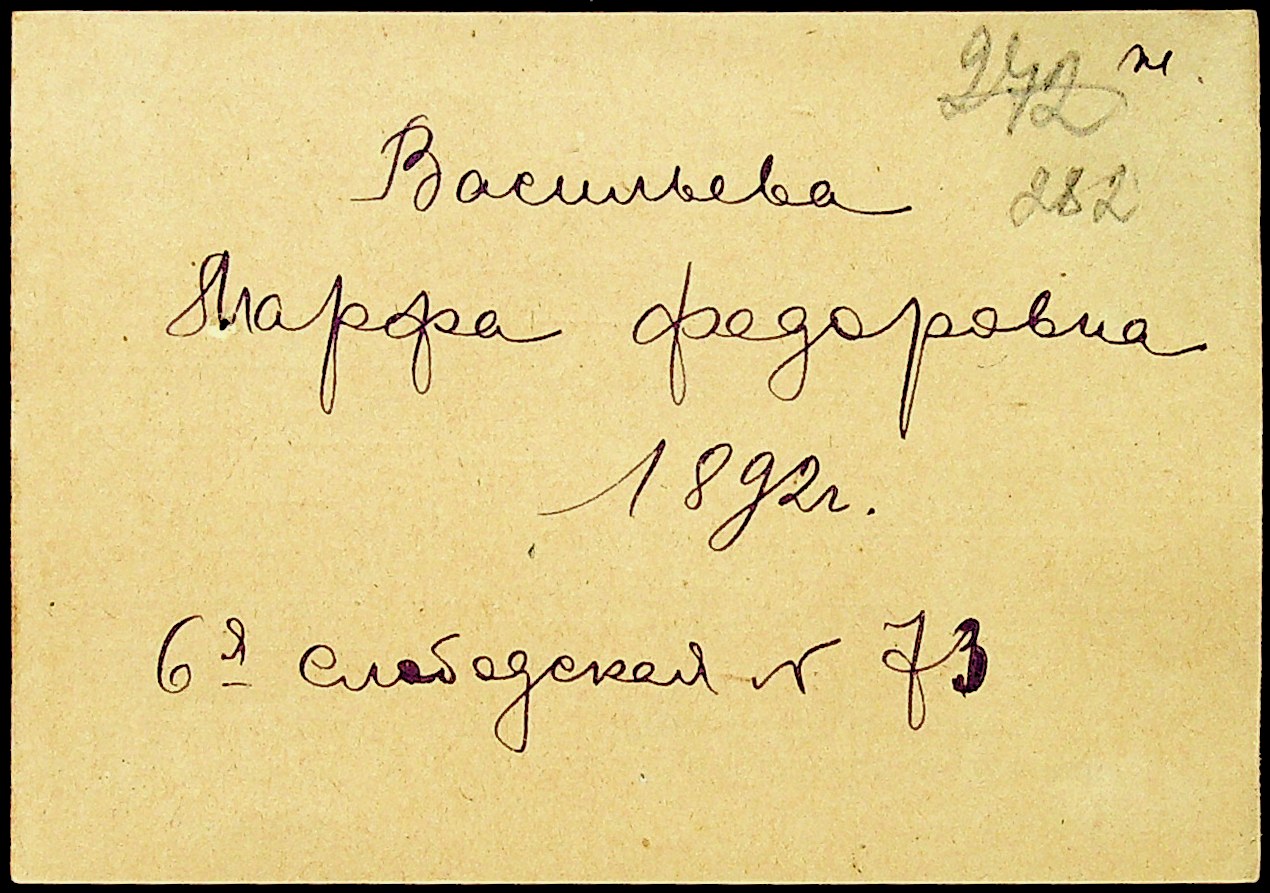 242 н.
282
Васильева
Марфа Федоровна
1892г.
6я слободская N 73